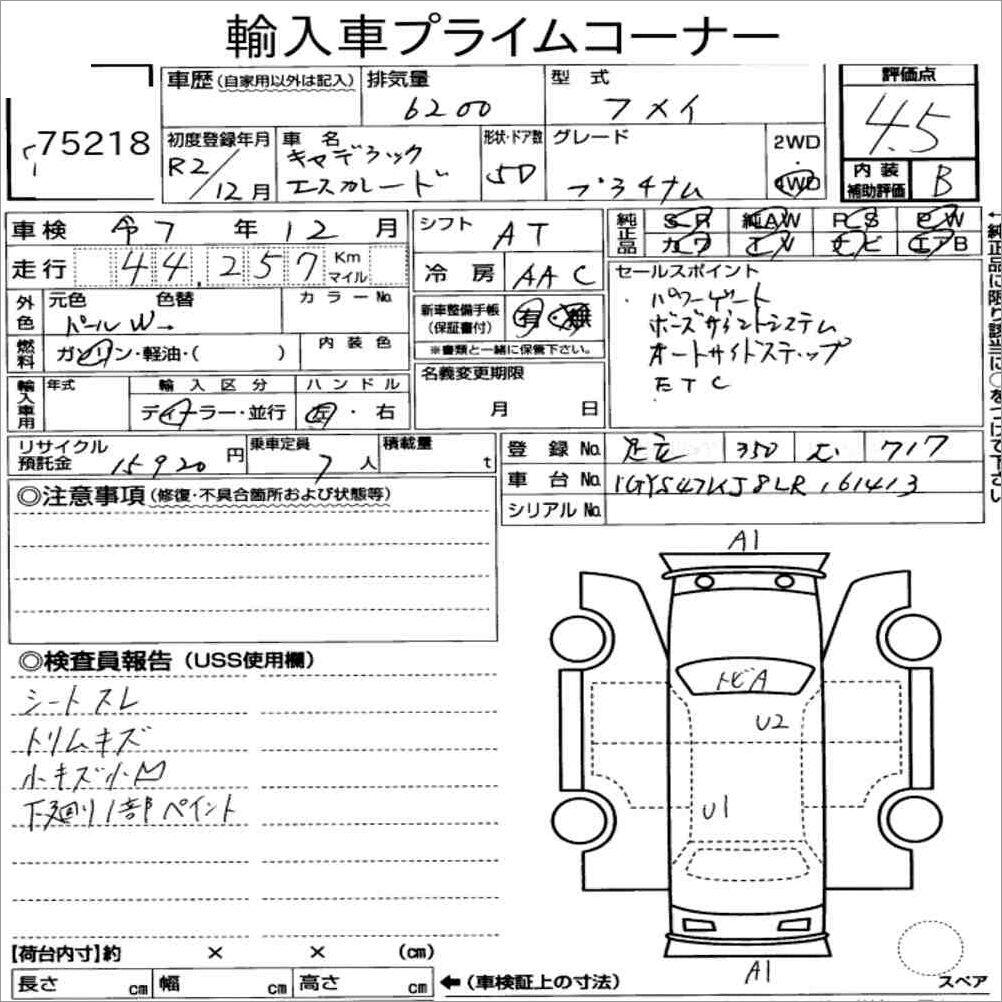 輸入車プライムコーナー
75218
車歴(自家用以外は記入)
排気量
6200
型式
フメイ
評価点
4.5
初度登録年月
R2/12月
車名
キャデラック
エスカレード
形状・ドア数
5D
グレード
プラチナム
2WD
4WD
内装
補助評価
B
車検 令7年12月
シフト
AT
純正品
SR 純AW PS PW
カワ TV ナビ エアB
走行 44,257 Km
マイル
冷房
AAC
セールスポイント
・パワーゲート
ボーズサウンドシステム
オートサイドステップ
ETC
外色
元色 色替
パールW→
カラーNo.
新車整備手帳
(保証書付)
有・無
※書類と一緒に保管下さい。
燃料
ガソリン・軽油・( )
内装色
名義変更期限
月 日
輸入車用
年式
輸入区分
ディーラー・並行
ハンドル
左・右
リサイクル
預託金
15920円
乗車定員
7人
積載量
t
登録No.
足立 350 717
車台No.
1GYS47KJ8LR161413
シリアルNo.
◎注意事項(修復・不具合箇所および状態等)
◎検査員報告(USS使用欄)
シートスレ
トリムキズ
小キズ小凹
下廻り1部ペイント
A1
トビA
U2
U1
A1
【荷台内寸】約 × × (cm)
長さ cm 幅 cm 高さ cm ←(車検証上の寸法)
スペア